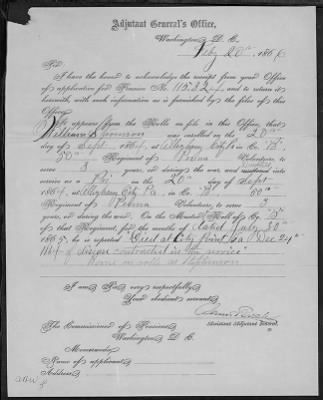 Adjutant General's Office,
Washington, D. C.
Feby 20th, 1866
Sir:
I have the honor to acknowledge the receipt from your Office
of application for Pension No. 115.824 and to return it
herewith, with such information as is furnished by the files of this
Office.
It appears from the Rolls on file in this Office, that
William was enrolled on the 20th
day of Sept. 1864, at Alleghany City Pa in Co. "B"
Regiment of Penna Volunteers, to
serve 3 years, or during the war, and mustered into
service as a Pri on the 20th day of Sept.
1864, at Alleghany City Pa, in Co. "B"
Regiment of Penna Volunteers, to serve 3
years, or during the war. On the Muster Roll of Co. "B"
of that Regiment, for the months of dated July 30th
1865, he is reported "Died at City Point Va Dec 24th
1864 of disease contracted in the service"
Name on rolls as
I am Sir, very respectfully,
Your obedient servant,
Assistant Adjutant General.
The Commissioner of Pensions,
Washington, D. C.
Memoranda:
Name of applicant
Address